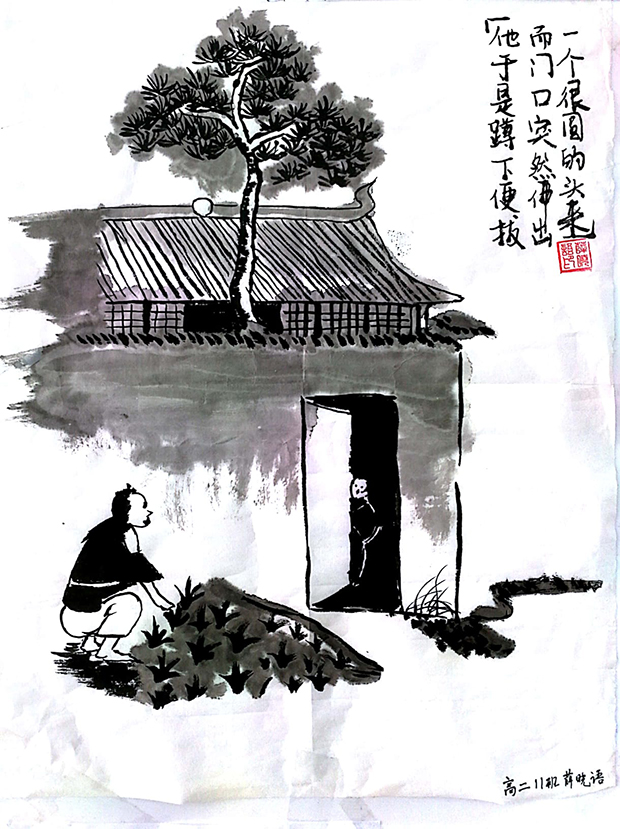 「他于是蹲下便拔
而门口突然伸出
一个很圆的头来
高二11班 薛晓语